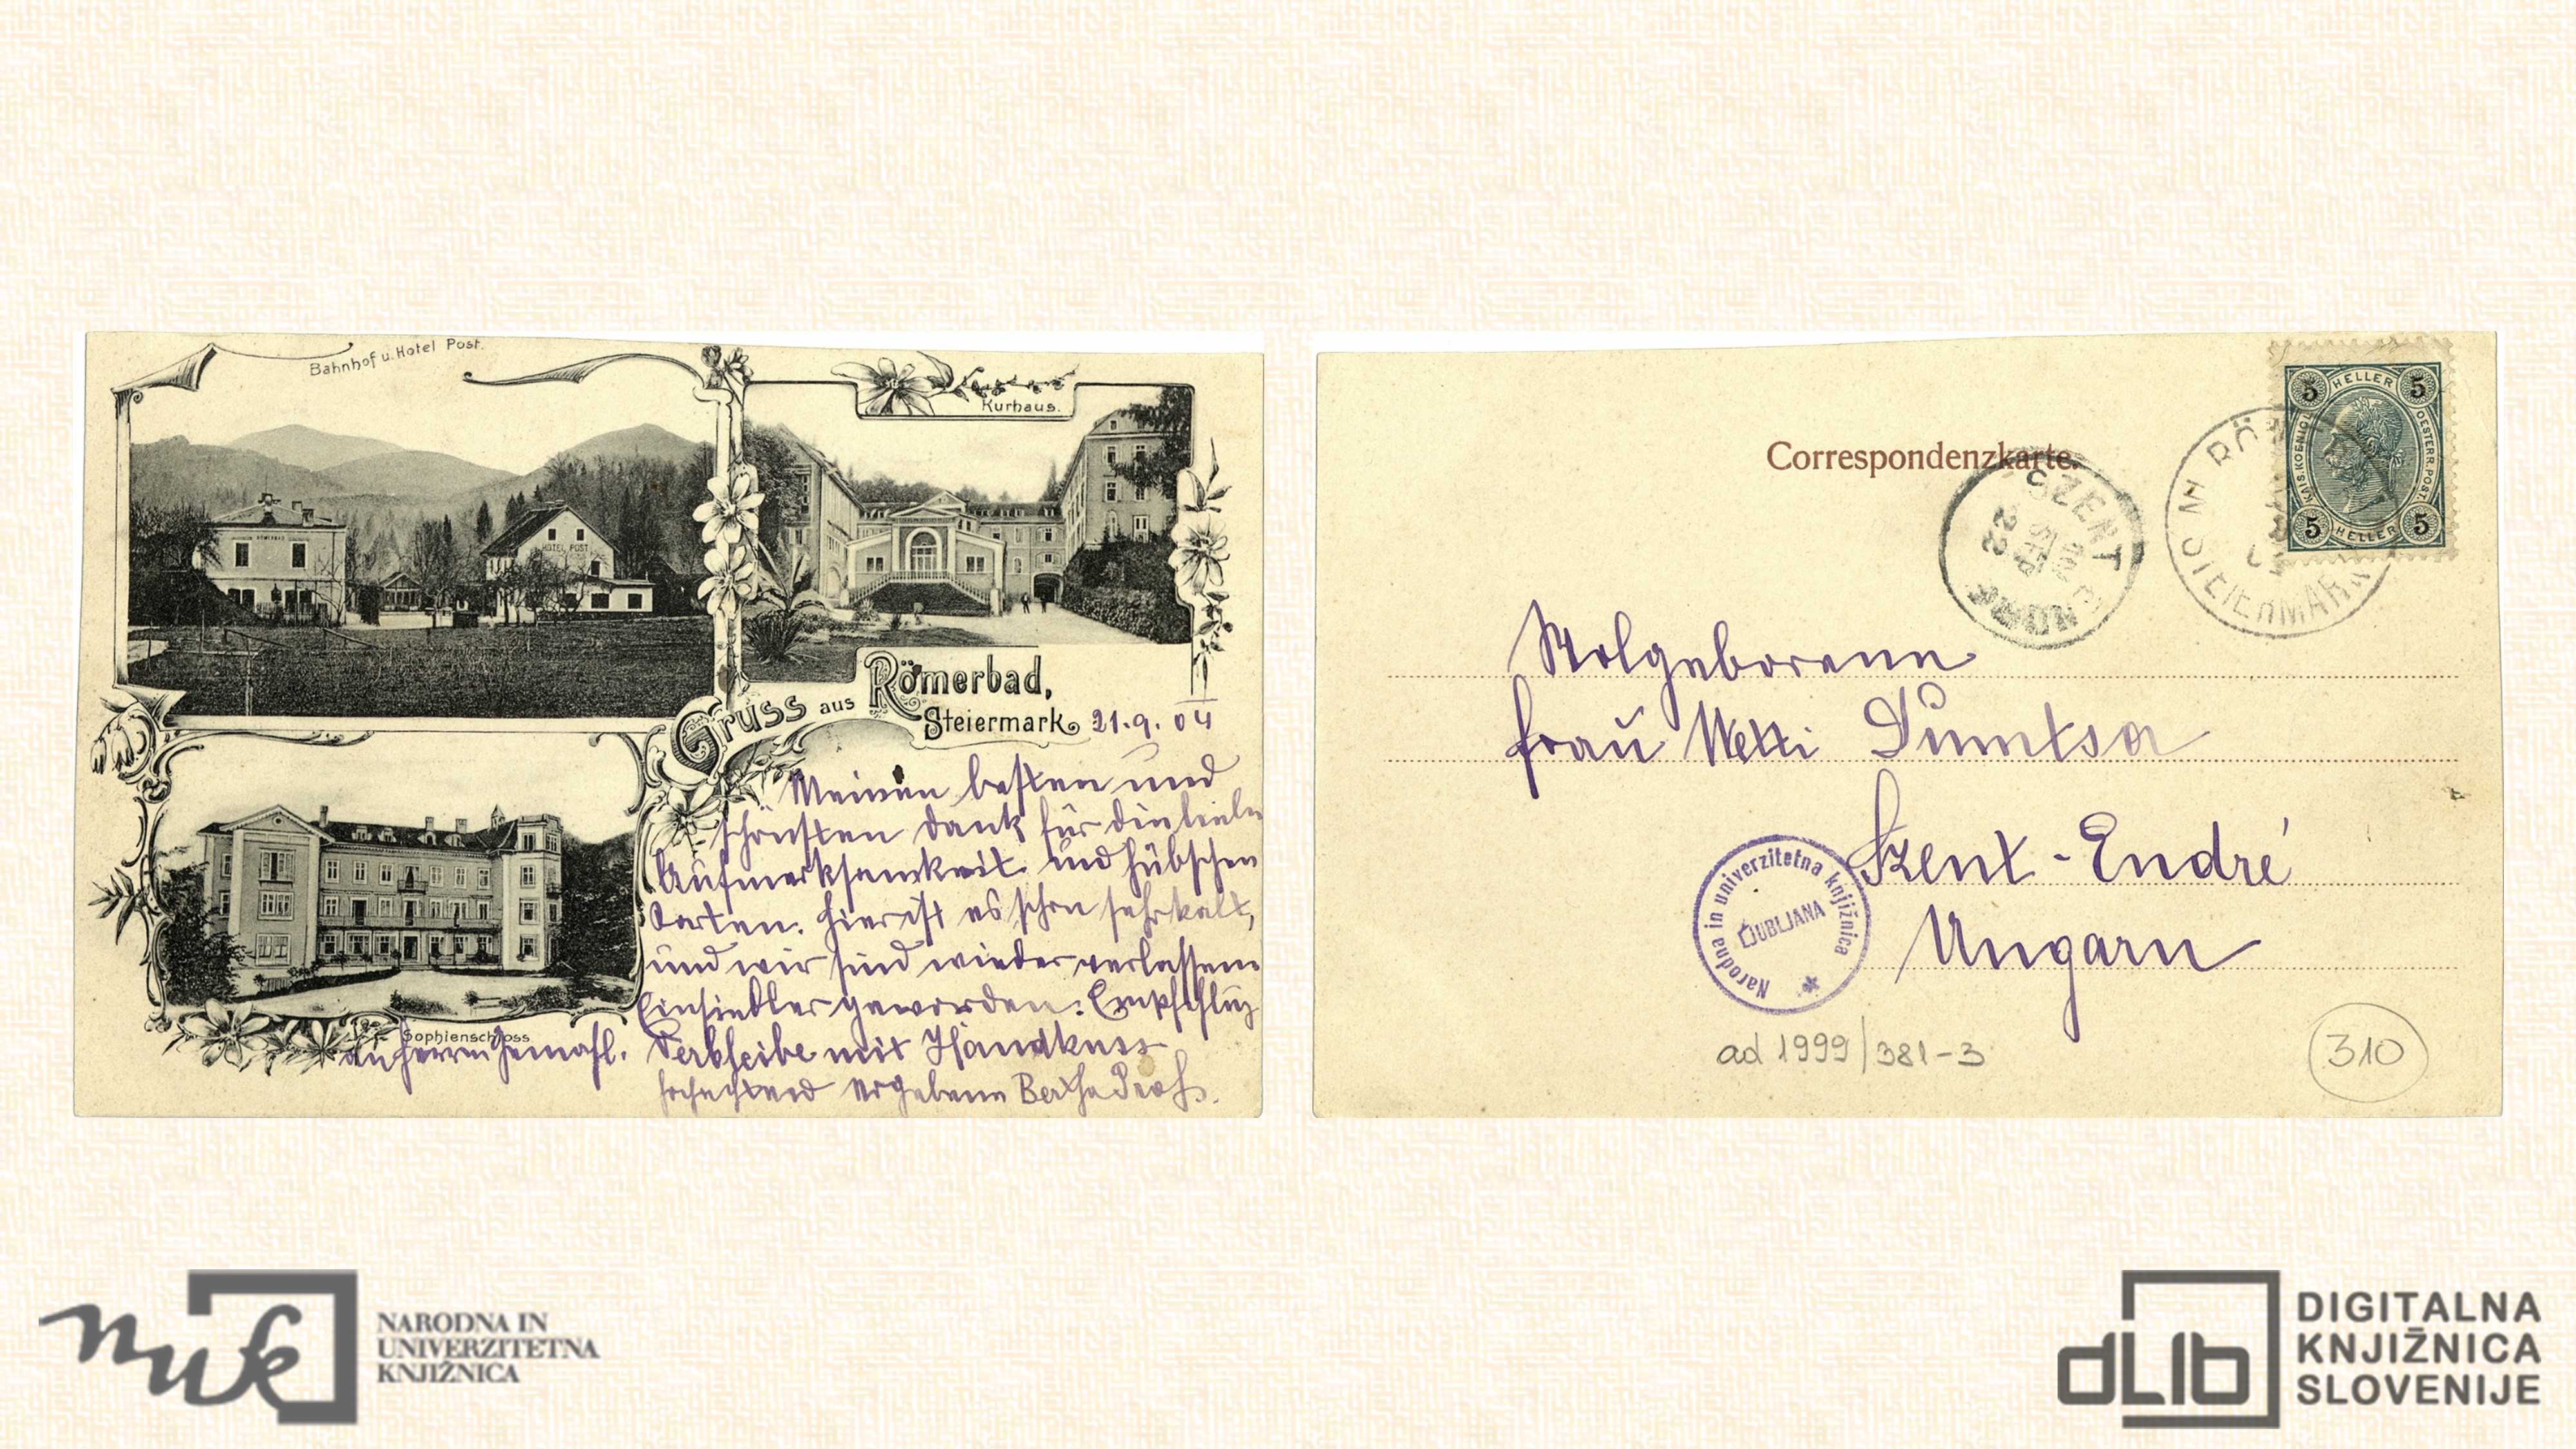 Bahnhof u. Hotel Post.
Kurhaus.
RÖMERBAD
HOTEL POST
Gruss aus Römerbad,
Steiermark 21.9.04
Meinen besten und
schönsten Dank für die liebe
Aufmerksamkeit und hübschen
Karten. Hier ist es schon sehr kalt,
und wir sind wieder verlassene
Einsiedler geworden. Empfehlung
Sophienschloss
an Herrn Gemahl. Verbleibe mit Handkuss
hochachtend ergebene Bertha
Correspondenzkarte.
5 HELLER 5
KAIS. KOENIGL. OESTERR. POST.
5 HELLER 5
SZENT
SEP
22
RÖ
STEIERMARK
Wolgeborene
Frau Netti
Szent-Endré
Ungarn
Narodna in univerzitetna knjižnica
LJUBLJANA
ad 1999/381-3
310
nuk
NARODNA IN
UNIVERZITETNA
KNJIŽNICA
dLib
DIGITALNA
KNJIŽNICA
SLOVENIJE